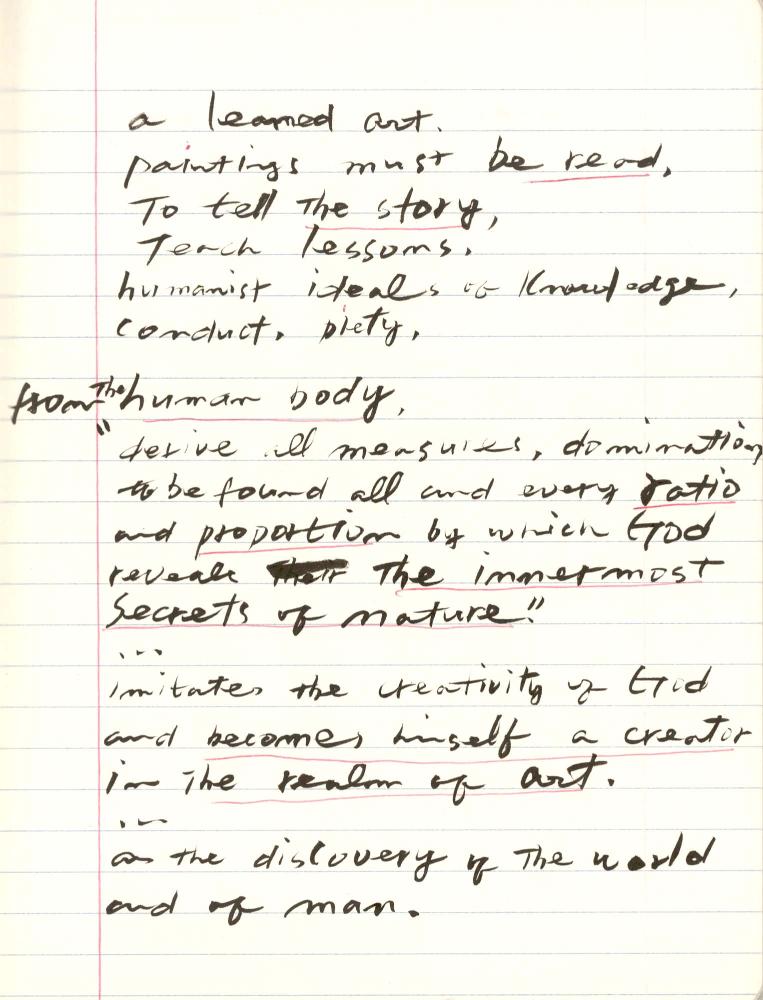 a learned art.
paintings must be read,
To tell The story,
Teach lessons.
humanist ideals of Knowledge,
conduct, piety,
from The human body,
"derive all measures, domination
to be found all and every ratio
and proportion by which God
reveals The innermost
Secrets of nature."
...
imitates the creativity of God
and becomes himself a creator
in The realm of art.
...
as the discovery of The world
and of man.